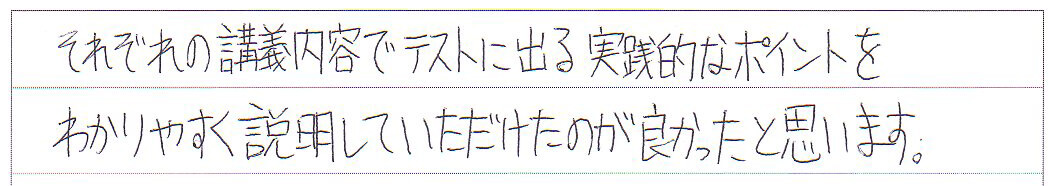 それぞれの講義内容でテストに出る実践的なポイントを
わかりやすく説明していただけたのが良かったと思います。